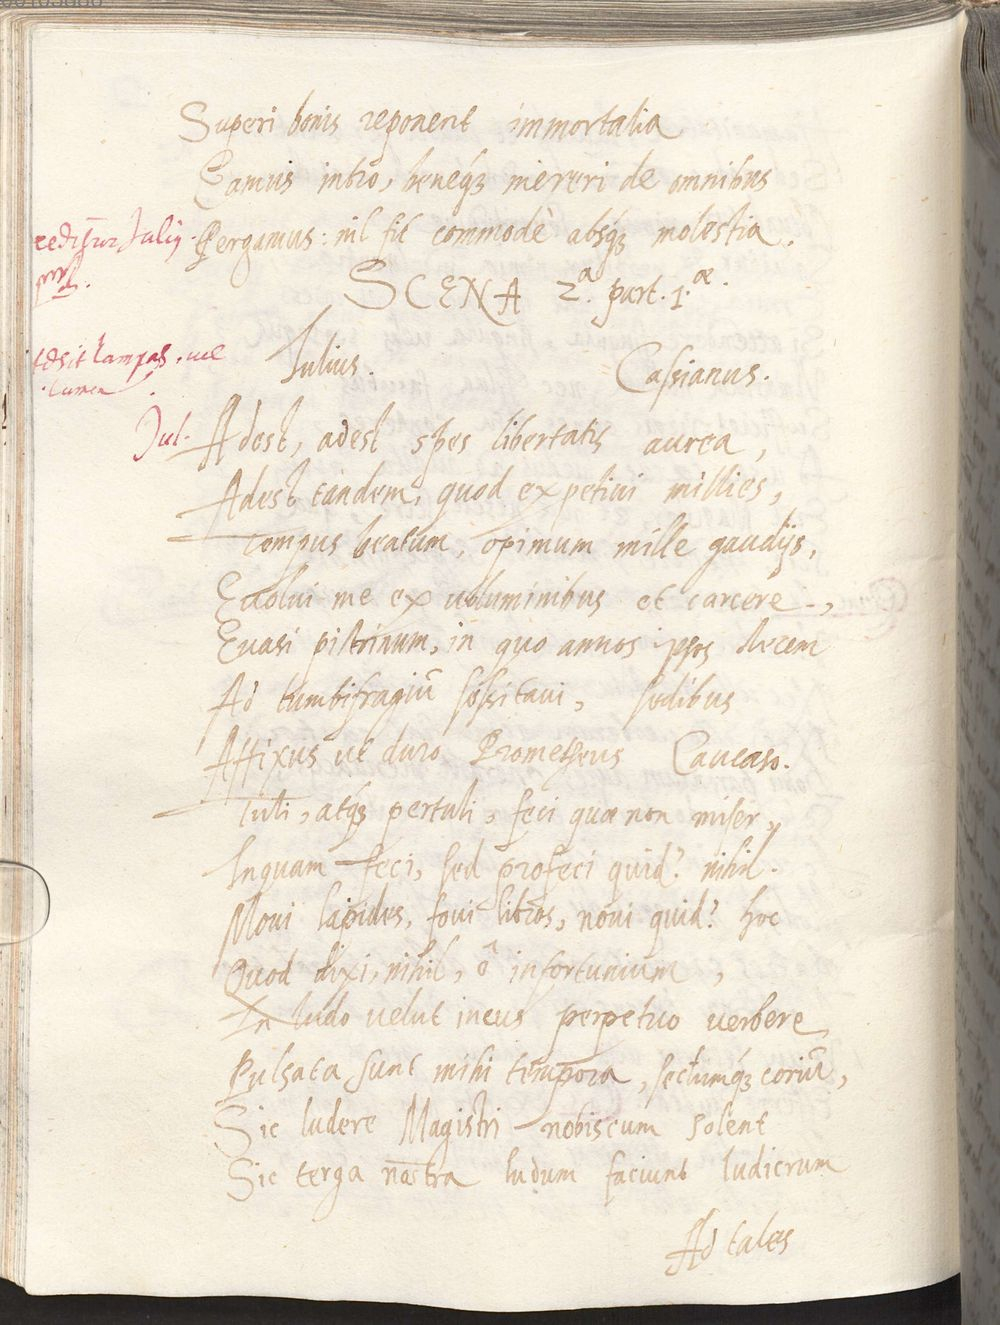 Superi bonis reponent immortalia
Eamus intro, beneq3 mereri de omnibus
Pergamus: nil fit commodè absq3 molestia.
SCENA 2.a part. 1.æ
lampas, uel
lumen
Iulius. Cassianus.
Jul. Adest, adest spes libertatis aurea,
Adest tandem, quod expetiui millies,
Tempus beatum, opimum mille gaudijs,
Euolui me ex uoluminibus et carcere,
Euasi pistrinum, in quo annos ipsos decem
Ad lumbifragiū sossitaui, sudibus
Affixus ut duro Prometheus Caucaso.
Tuli, atq3 pertuli, feci quæ non miser,
Inquam feci, sed profeci quid? nihil.
Moui lapides, foui libros, noui quid? hoc
Quod dixi, nihil, ô infortunium,
In ludo uelut incus perpetuo uerbere
Pulsata sunt mihi tempora, sectumq3 coriū,
Sic ludere Magistri nobiscum solent
Sic terga nostra ludum faciunt ludicrum
Ad tales